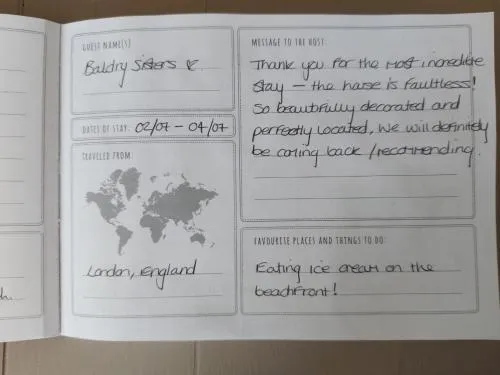 GUEST NAME(S)
Baldry Sisters
DATES OF STAY: 02/07 – 04/07
TRAVELED FROM:
London, England
MESSAGE TO THE HOST:
Thank you for the most incredible
stay – the house is faultless!
So beautifully decorated and
perfectly located, we will definitely
be coming back / recommending.
FAVOURITE PLACES AND THINGS TO DO:
Eating ice cream on the
beachfront!